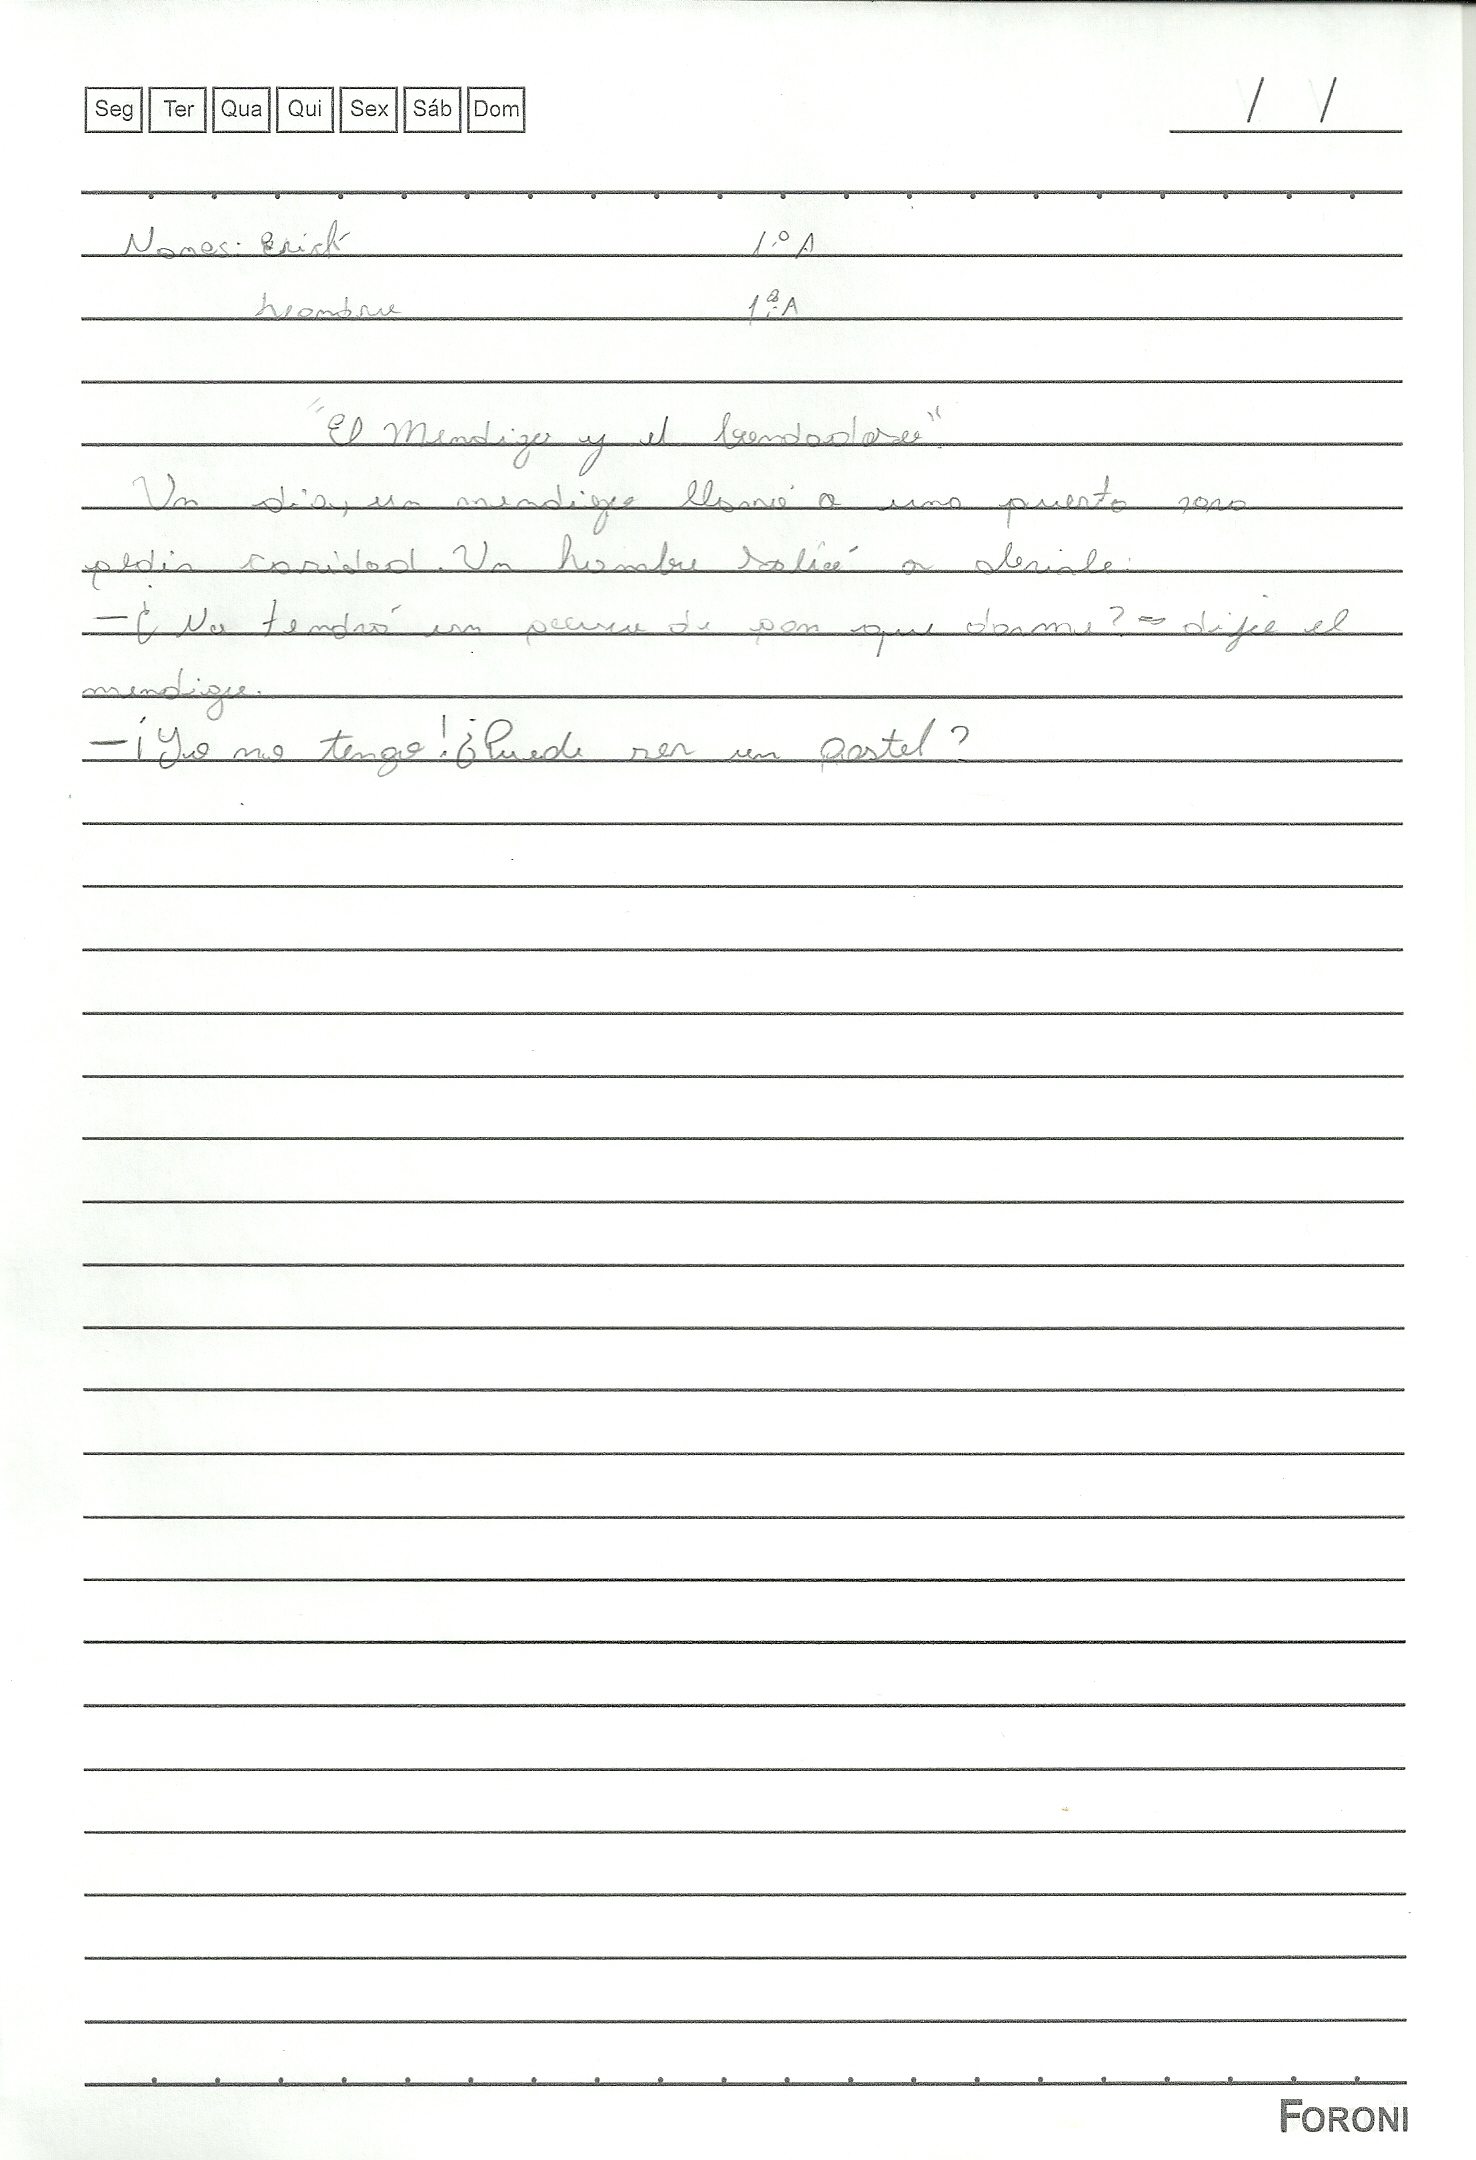 Seg Ter Qua Qui Sex Sáb Dom / /
Nomes: Erick 1.º A
hombre 1ª A
"El Mendigo y el bondadoso"
Un día, un mendigo llamó a una puerta para
pedir caridad. Un hombre salió a abrirle:
— ¿ No tendrá un poco de pan que darme? – dijo el
mendigo.
— ¡Yo no tengo! ¿Puede ser un pastel?
FORONI